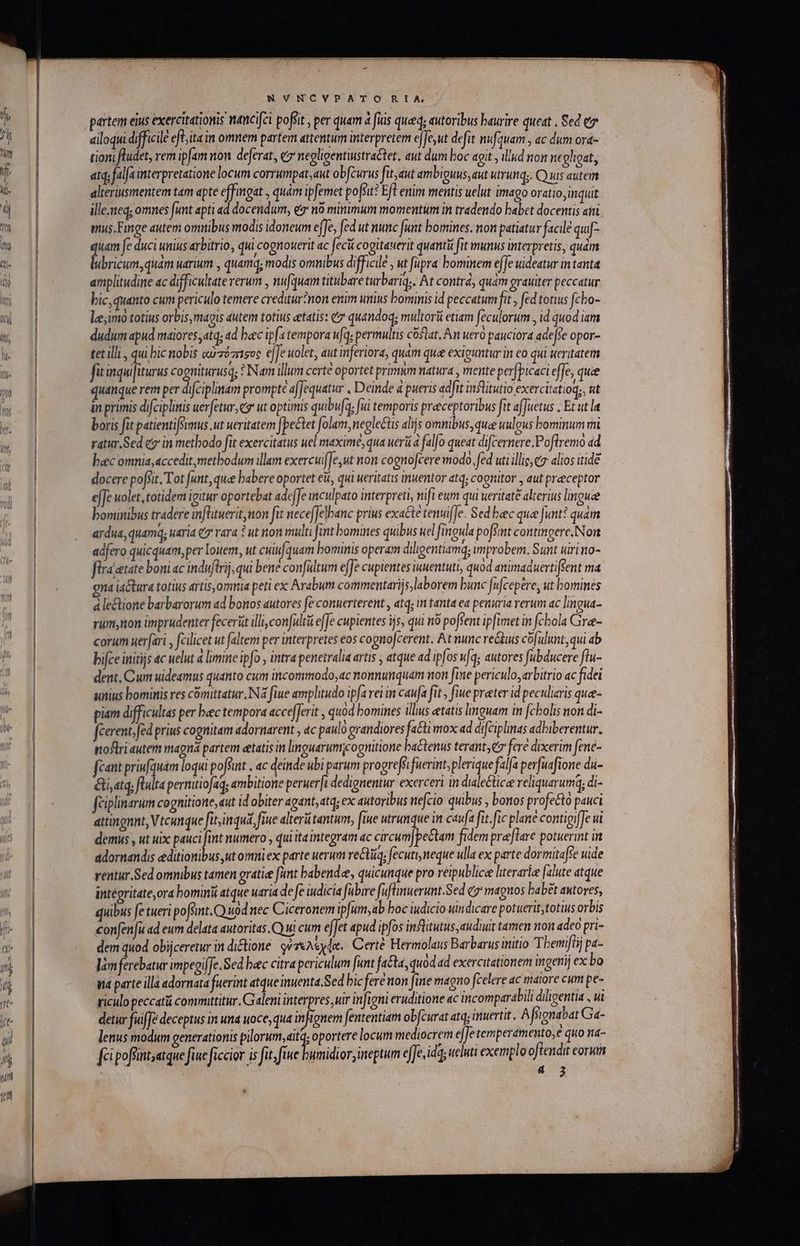 NVNCVPATORIA.
partem eius exercitationis nancisci possit, per quam à suis quaeq; autoribus haurire queat. Sed &
ailoqui difficile est, ita in omnem partem attentum interpretem esse, ut desit nusquam, ac dum ora-
tioni studet, rem ipsam non deserat, & negligentius tractet. aut dum hoc agit, illud non negligat,
atq; falsa interpretatione locum corrumpat, aut obscurus sit, aut ambiguus, aut utrunq;. Quis autem
alterius mentem tam apte effingat, quám ipsemet possit? Est enim mentis uelut imago oratio, inquit
ille. neq; omnes sunt apti ad docendum, & nō minimum momentum in tradendo habet docentis ani
mus. Finge autem omnibus modis idoneum esse, sed ut nunc sunt homines. non patiatur facile quis-
quam se duci unius arbitrio, qui cognouerit ac secū cogitauerit quantū sit munus interpretis, quám
lubricum, quàm uarium, quamq; modis omnibus difficile, ut supra hominem esse uideatur in tanta
amplitudine ac difficultate rerum, nusquam titubare turbariq;. At contrá, quám grauiter peccatur
hic, quanto cum periculo temere creditur? non enim unius hominis id peccatum fit, sed totius scho-
lae, imò totius orbis, magis autem totius aetatis: & quandoq; multorū etiam seculorum, id quod iam
dudum apud maiores, atq; ad haec ipsa tempora usq; permultis cōstat. An uerò pauciora adesse opor-
tet illi, qui hic nobis αὐτόπιστος esse uolet, aut inferiora, quám quae exiguntur in eo qui ueritatem
sit inquisiturus cogniturusq;? Nam illum certè oportet primùm natura, mente perspicaci esse, quae
quanque rem per disciplinam promptè assequatur. Deinde à pueris adsit institutio exercitatioq;, ut
in primis disciplinis uersetur, & ut optimis quibusq; sui temporis praeceptoribus sit assuetus. Et ut la
boris sit patientissimus, ut ueritatem spectet solam, neglectis alijs omnibus, quae uulgus hominum mi
ratur. Sed & in methodo sit exercitatus uel maximè, qua uerū à falso queat discernere. Postremò ad
haec omnia, accedit, methodum illam exercuisse, ut non cognoscere modò, sed uti illis, & alios itidē
docere possit. Tot sunt, quae habere oportet eū, qui ueritatis inuentor atq; cognitor, aut praeceptor
esse uolet, totidem igitur oportebat adesse inculpato interpreti, nisi eum qui ueritatē alterius linguae
hominibus tradere instituerit, non sit necesse hanc prius exactè tenuisse. Sed haec quae sunt? quàm
ardua, quamq; uaria & rara? ut non multi sint homines quibus uel singula possint contingere. Non
adfero quicquam, per Iouem, ut cuiusquam hominis operam diligentiamq; improbem. Sunt uiri no-
stra aetate boni ac industrij, qui bene consultum esse cupientes iuuentuti, quòd animaduertissent ma
gna iactura totius artis, omnia peti ex Arabum commentarijs, laborem hunc suscepêre, ut homines
à lectione barbarorum ad bonos autores se conuerterent, atq; in tanta ea penuria rerum ac lingua-
rum, non imprudenter fecerūt illi, consultū esse cupientes ijs, qui nō possent ipsimet in schola Grae-
corum uersari, scilicet ut saltem per interpretes eos cognoscerent. At nunc rectius cōsulunt, qui ab
hisce initijs ac uelut à limine ipso, intra penetralia artis, atque ad ipsos usq; autores subducere stu-
dent. Cum uideamus quanto cum incommodo, ac nonnunquam non sine periculo, arbitrio ac fidei
unius hominis res cōmittatur. Nā siue amplitudo ipsa rei in causa sit, siue praeter id peculiaris quae-
piam difficultas per haec tempora accesserit, quòd homines illius aetatis linguam in scholis non di-
scerent, sed prius cognitam adornarent, ac paulò grandiores facti mox ad disciplinas adhiberentur.
nostri autem magnā partem aetatis in linguarum cognitione hactenus terant, & ferè dixerim sene-
scant priusquam loqui possint, ac deinde ubi parum progressi fuerint, plerique falsa persuasione du-
cti, atq; stulta pernitiosaq; ambitione peruersi dedignentur exerceri in dialectice reliquarumq; di-
sciplinarum cognitione, aut id obiter agant, atq; ex autoribus nescio quibus, bonos profectò pauci
attingunt, Vtcunque sit, inquā, siue alterū tantum, siue utrunque in causa sit. sic planè contigisse ui
demus, ut uix pauci sint numero, qui ita integram ac circumspectam fidem praestare potuerint in
adornandis aeditionibus, ut omni ex parte uerum rectūq; secuti, neque ulla ex parte dormitasse uide
rentur. Sed omnibus tamen gratiae sunt habendae, quicunque pro reipublicae literariae salute atque
integritate, ora hominū atque uaria de se iudicia subire sustinuerunt. Sed & magnos habēt autores,
quibus se tueri possint. Quòd nec Ciceronem ipsum, ab hoc iudicio uindicare potuerit, totius orbis
consensu ad eum delata autoritas. Qui cum esset apud ipsos institutus, audiuit tamen non adeò pri-
dem quod obijceretur in dictione Certè Hermolaus Barbarus initio Themistij pa-
làm ferebatur impegisse. Sed haec citra periculum sunt facta, quòd ad exercitationem ingenij ex bo
na parte illa adornata fuerint atque inuenta. Sed hic ferè non sine magno scelere ac maiore cum pe-
riculo peccatū committitur. Galeni interpres, uir insigni eruditione ac incomparabili diligentia, ui
detur fuisse deceptus in una uoce, qua insignem sententiam obscurat atq; inuertit. Assignabat Ga-
lenus modum generationis pilorum, aitq; oportere locum mediocrem esse temperamento, è quo na-
sci possint, atque siue siccior is sit, siue humidior, ineptum esse, idq; ueluti exemplo ostendit eorum
a 3